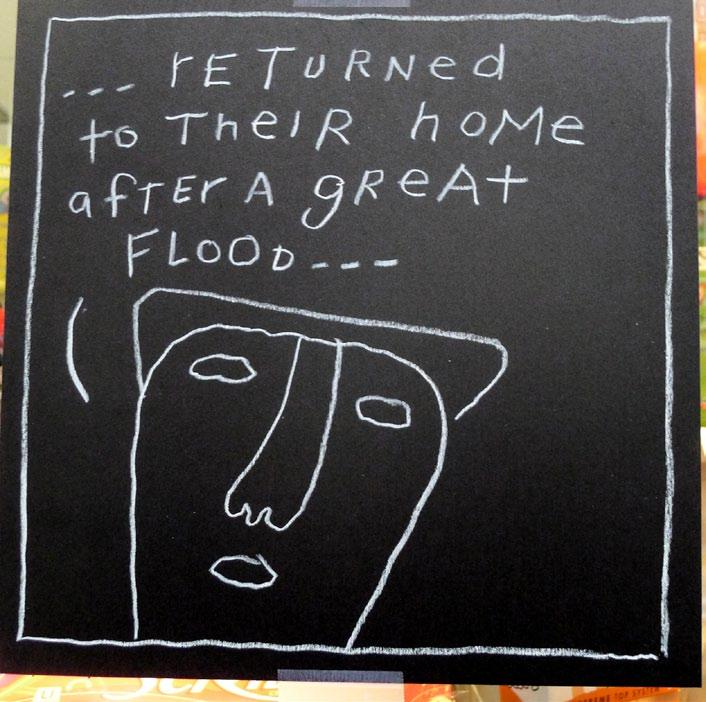 --- rETURNed
to TheIR hoMe
afTEr A gReAt
FLOOD---